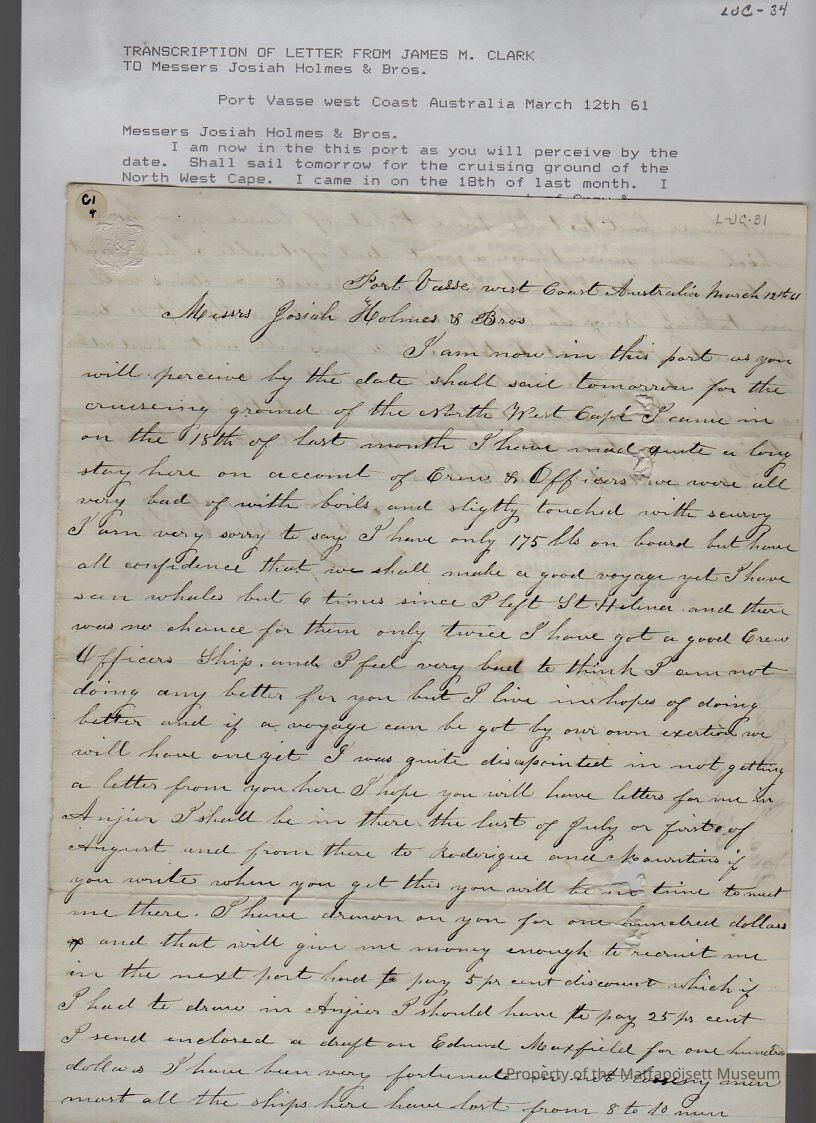 LJC-34
TRANSCRIPTION OF LETTER FROM JAMES M. CLARK
TO Messers Josiah Holmes & Bros.
Port Vasse west Coast Australia March 12th 61
Messers Josiah Holmes & Bros.
I am now in the this port as you will perceive by the
date. Shall sail tomorrow for the cruising ground of the
North West Cape. I came in on the 18th of last month. I
C1
4
LJC-31
P&P
Port Vasse west Coast Australia March 12th 61
Messrs Josiah Holmes & Bros
I am now in this port as you
will perceive by the date shall sail tomorrow for the
cruiseing ground of the North West Cape I came in
on the 18th of last month I have mad quite a long
stay here on account of Crew & Officers we were all
very bad of with boils and sligtly touched with scurvy
I am very sorry to say I have only 175 bls on board but have
all confidence that we shall make a good voyage yet I have
seen whales but 6 times since I left St Helena and there
was no chance for them only twice I have got a good Crew
Officers Ship. and I feel very bad to think I am not
doing any better for you but I live in hopes of doing
better and if a voyage can be got by our own exertion we
will have one yet I was quite disapointed in not getting
a letter from you here I hope you will have letters for me in
Anjier I shall be in there the last of July or first of
August and from there to Roderique and Mauritius if
you write when you get this you will be in time to meet
me there. I have drawn on you for one hundred dollars
and that will give me money enough to recruit me
in the next port had to pay 5 pr cent discount which if
I had to draw in Anjier I should have to pay 25 pr cent
I send enclosed a draft on Edmund Maxfield for one hundred
dollars I have been very fortunate in not men
most all the ships here have lost from 8 to 10 men
Property of the Mattapoisett Museum